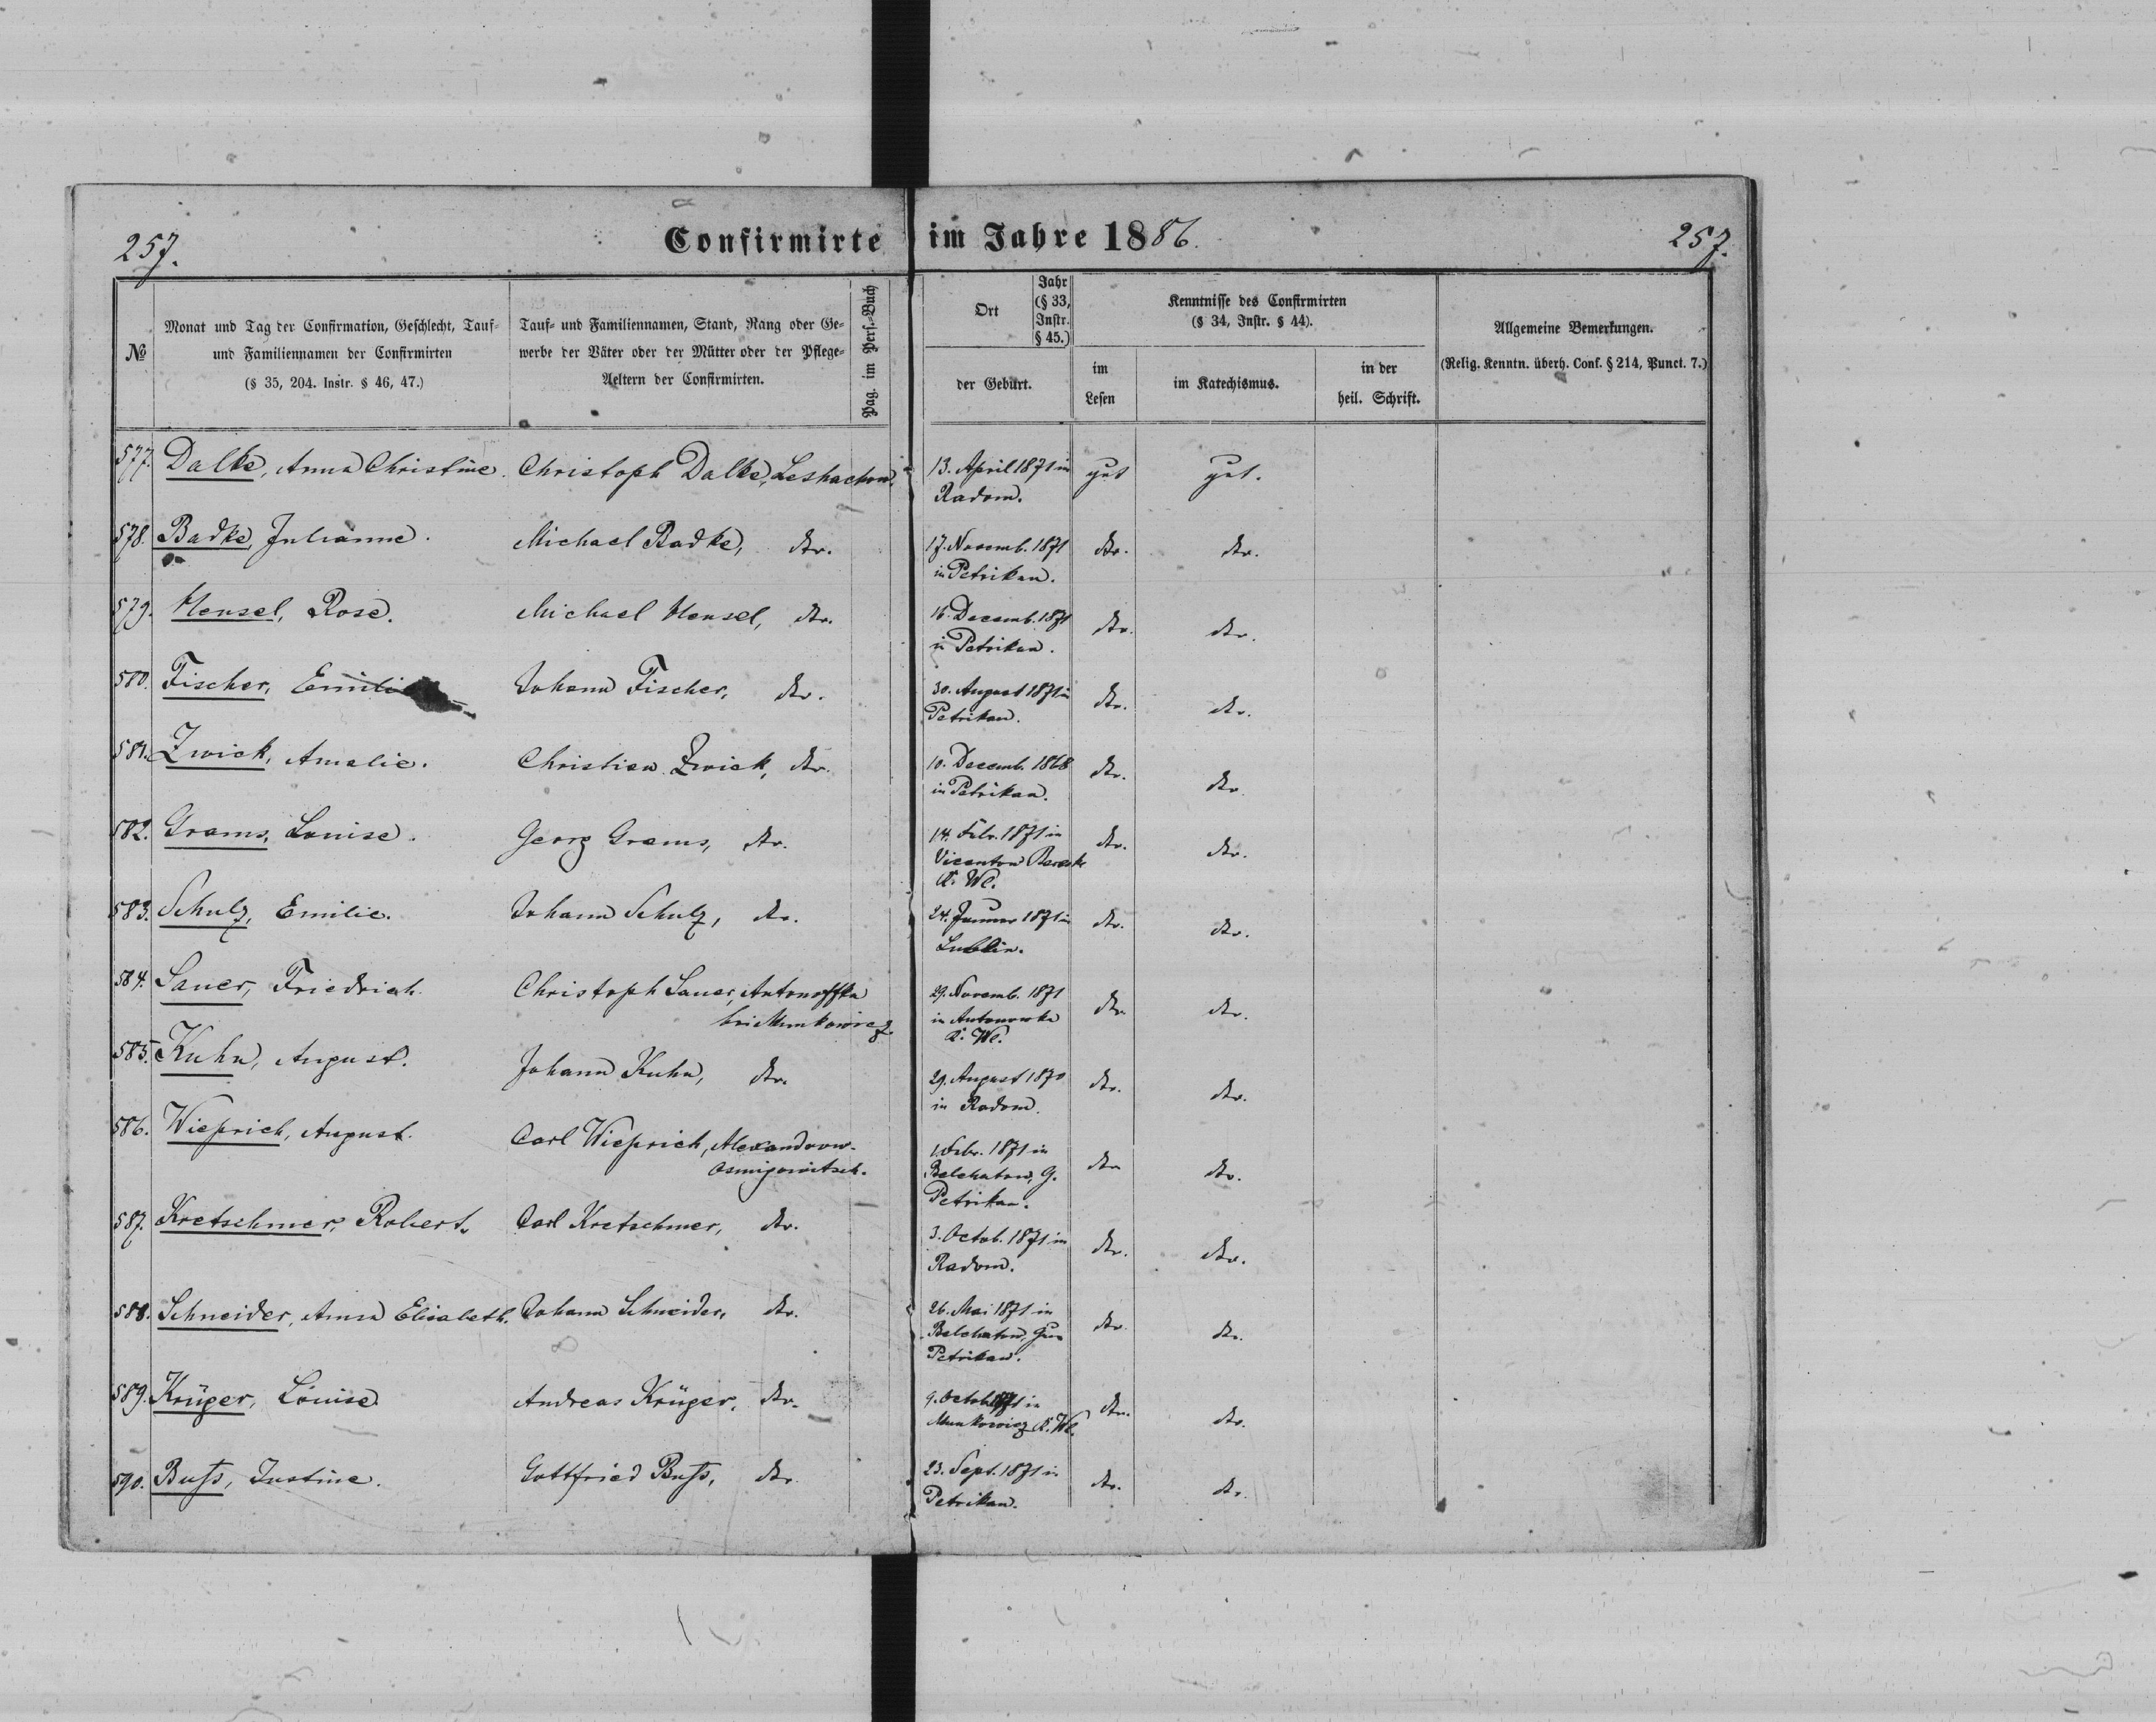 257.
Confirmirte im Jahre 1886.
257.
№
Monat und Tag der Confirmation, Geschlecht, Tauf-
und Familiennamen der Confirmirten
(§ 35, 204. Instr. § 46, 47.)
Tauf- und Familiennamen, Stand, Rang oder Ge-
werbe der Väter oder der Mütter oder der Pflege-
Aeltern der Confirmirten.
Pag. im Pers.-Buch
Ort
Jahr
(§ 33,
Instr.
§ 45.)
der Geburt.
Kenntnisse des Confirmirten
(§ 34, Instr. § 44).
im
Lesen
im Katechismus.
in der
heil. Schrift.
Allgemeine Bemerkungen.
(Relig. Kenntn. überh. Conf. § 214, Punct. 7.)
577. Dalke, Anna Christine. Christoph Dalke, Leshachow. 13. April 1871 in gut gut.
Radom.
578. Badke, Julianne. Michael Badke, dto. 17. Novemb. 1871 dto. dto.
in Petrikau.
579. Hensel, Rose. Michael Hensel, dto. 16. Decemb. 1871 dto. dto.
in Petrikau.
580. Fischer, Emilie Johann Fischer, dto. 30. August 1871 in dto. dto.
Petrikau.
581. Zwick, Amalie. Christian Zwick, dto. 10. Decemb. 1868 dto. dto.
in Petrikau.
582. Grams, Louise. Georg Grams, dto. 14. Febr. 1871 in dto. dto.
K. Wl.
583. Schulz, Emilie. Johann Schulz, dto. 24. Januar 1871 in dto. dto.
Lublin.
584. Sauer, Friedrich. Christoph Sauer, Antonoffka 29. Novemb. 1871 dto. dto.
bei Munkowicz in Antonowka
K. Wl.
585. Kuhn, August. Johann Kuhn, dto. 29. August 1870 dto. dto.
in Radom.
586. Wieprich, August. Carl Wieprich, Alexandrow- 1. Febr. 1871 in dto. dto.
Osmigowitsch. Belchatow, G.
Petrikau.
587. Kretschmer, Robert. Carl Kretschmer, dto. 3. Octob. 1871 in dto. dto.
Radom.
588. Schneider, Anna Elisabeth. Johann Schneider, dto. 26. Mai 1871 in dto. dto.
Belchatow, Guv
Petrikau.
589. Krüger, Louise Andreas Krüger, dto. 9. Octob. 1871 in dto. dto.
Munkowicz K. Wl.
590. Buss, Justine. Gottfried Buss, dto. 23. Sept. 1871 in dto. dto.
Petrikau.